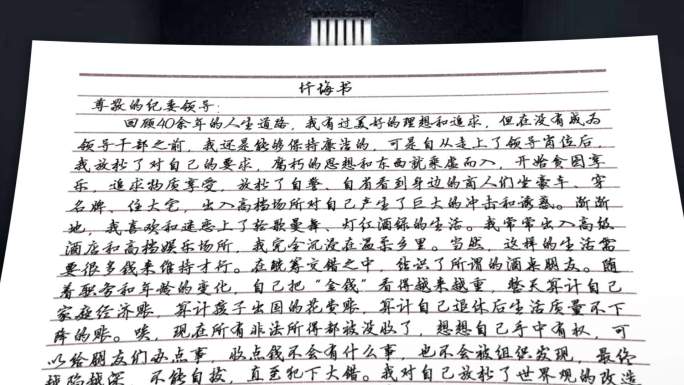 忏悔书
尊敬的纪委领导：
回顾40余年的人生道路，我有过美好的理想和追求，但在没有成为
领导干部之前，我还是能够保持廉洁的，可是自从走上了领导岗位后，
我放松了对自己的要求，腐朽的思想和东西就乘虚而入，开始贪图享
乐，追求物质享受，放松了自警、自省看到身边的商人们坐豪车、穿
名牌、住大宅，出入高档场所对自己产生了巨大的冲击和诱惑。渐渐
地，我喜欢和迷恋上了轻歌曼舞、灯红酒绿的生活。我常常出入高级
酒店和高档娱乐场所，我完全沉浸在温柔乡里。当然，这样的生活需
要很多钱来维持才行。在觥筹交错之中，结识了所谓的酒桌朋友。随
着职务和年龄的变化，自己把“金钱”看得越来越重，整天算计自己
家庭经济账，算计孩子出国的花费账，算计自己退休后生活质量不下
降的账。唉，现在所有非法所得都被没收了，想想自己手中有权，可
以给朋友们办点事，收点钱不会有什么事，也不会被组织发现，最终
越陷越深，不能自拔，直至犯下大错。我对自己放松了世界观的改造